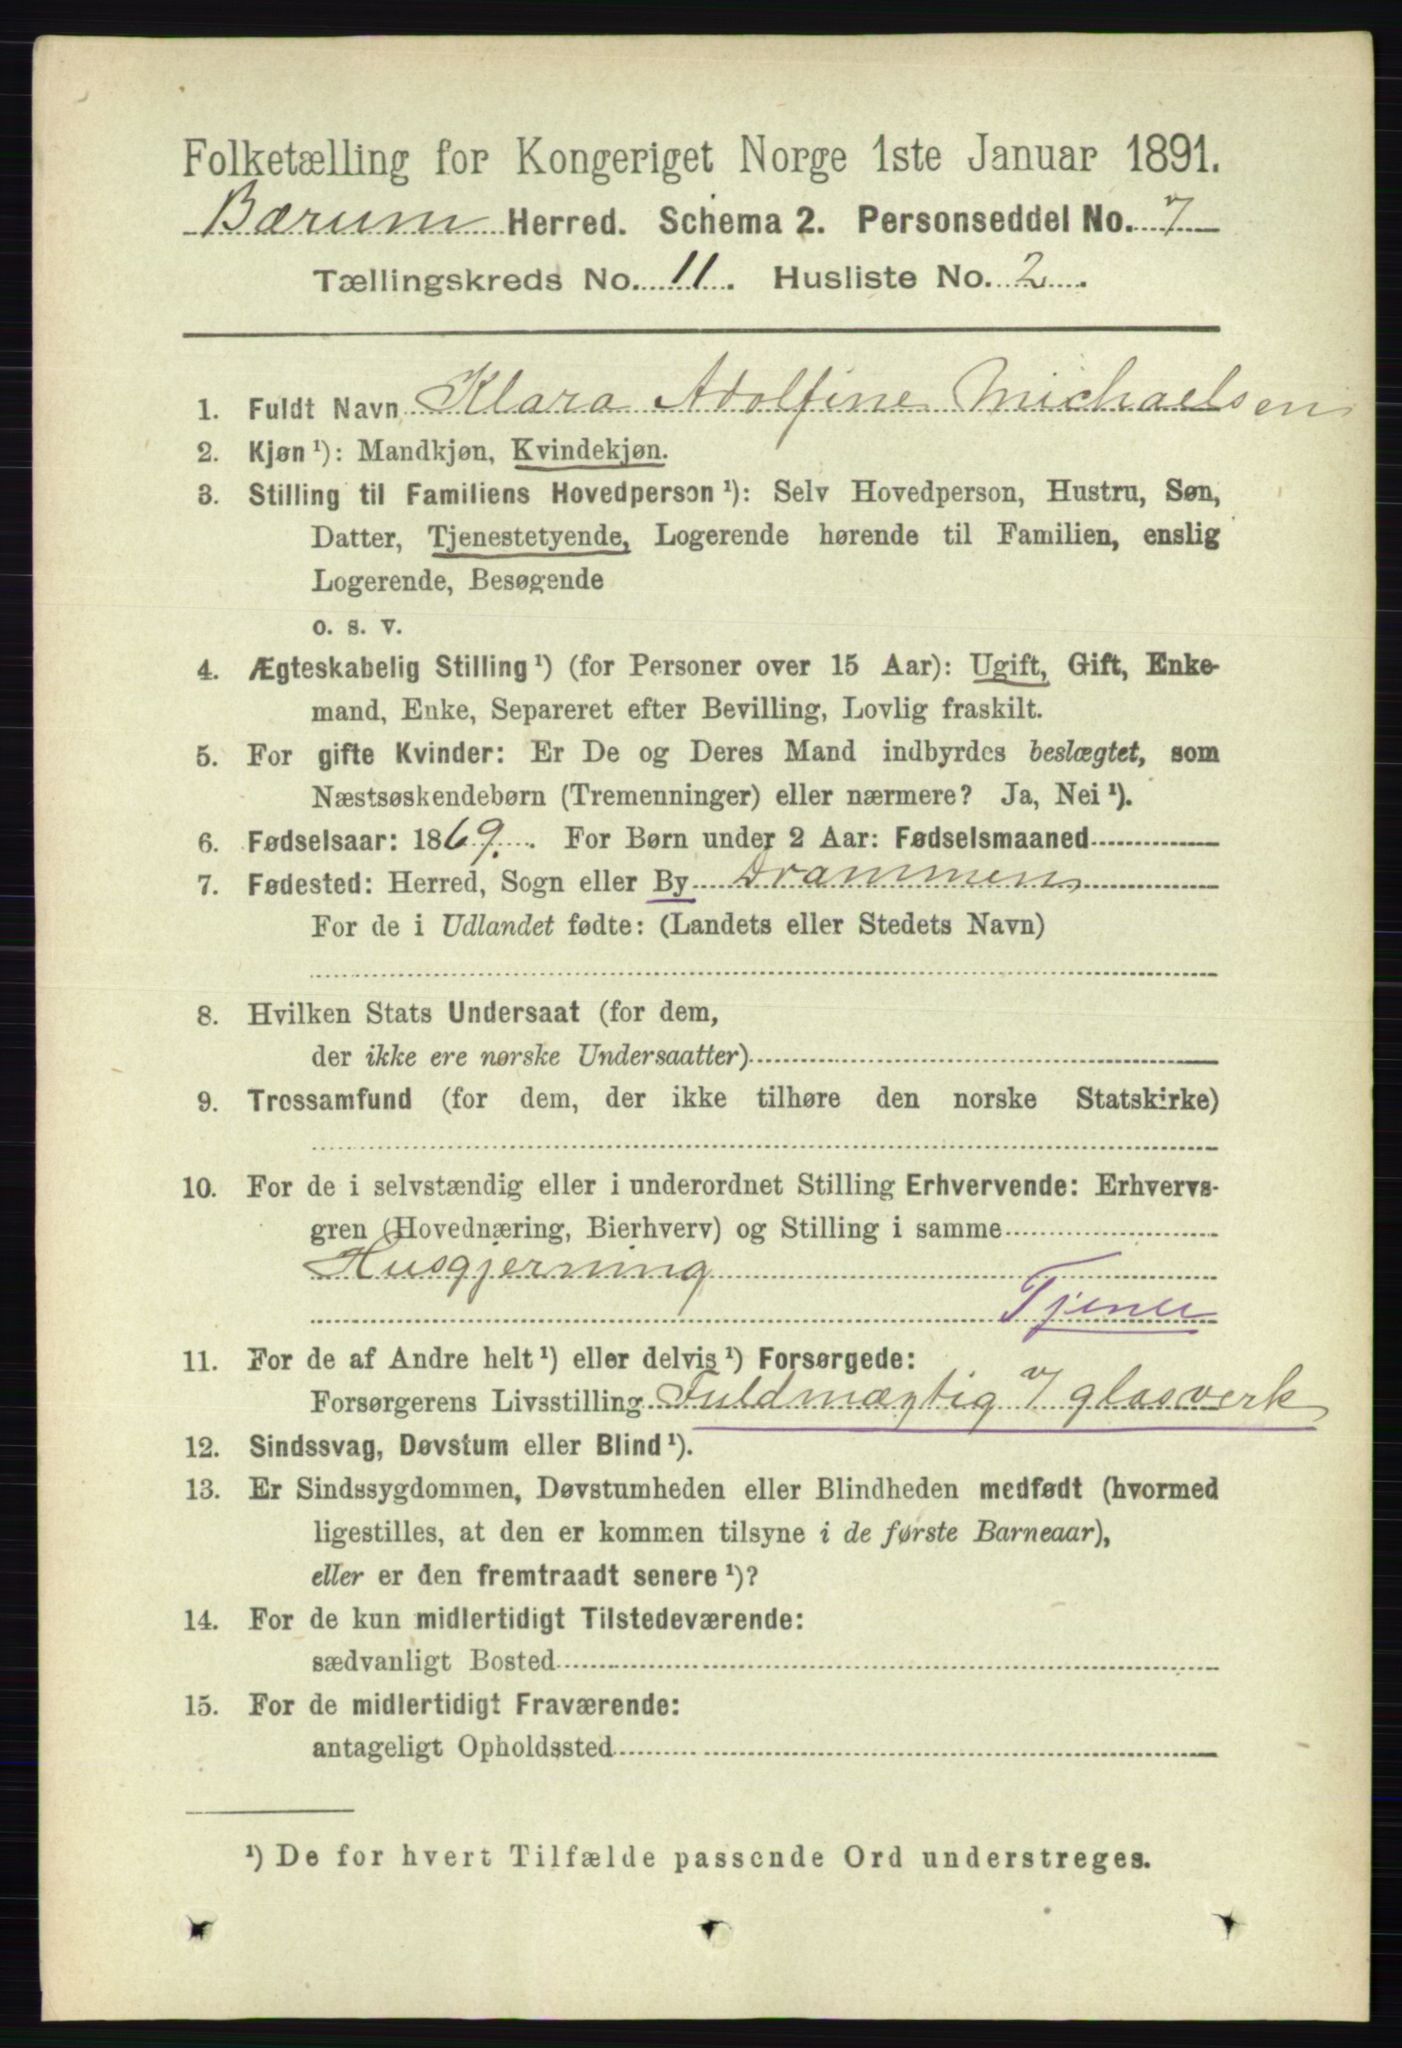 Folketælling for Kongeriget Norge 1ste Januar 1891.
Bærum Herred. Schema 2. Personseddel No. 7
Tællingskreds No. 11. Husliste No. 2.
1. Fuldt Navn Klara Adolfine Michaelsen
2. Kjøn ¹): Mandkjøn, Kvindekjøn.
3. Stilling til Familiens Hovedperson ¹): Selv Hovedperson, Hustru, Søn,
Datter, Tjenestetyende, Logerende hørende til Familien, enslig
Logerende, Besøgende
o. s. v.
4. Ægteskabelig Stilling ¹) (for Personer over 15 Aar): Ugift, Gift, Enke-
mand, Enke, Separeret efter Bevilling, Lovlig fraskilt.
5. For gifte Kvinder: Er De og Deres Mand indbyrdes beslægtet, som
Næstsøskendebørn (Tremenninger) eller nærmere? Ja, Nei ¹).
6. Fødselsaar: 1869. For Børn under 2 Aar: Fødselsmaaned
7. Fødested: Herred, Sogn eller By Drammen
For de i Udlandet fødte: (Landets eller Stedets Navn)
8. Hvilken Stats Undersaat (for dem,
der ikke ere norske Undersaatter)
9. Trossamfund (for dem, der ikke tilhøre den norske Statskirke)
10. For de i selvstændig eller i underordnet Stilling Erhvervende: Erhvervs-
gren (Hovednæring, Bierhverv) og Stilling i samme
Husgjerning
Tjener
11. For de af Andre helt ¹) eller delvis ¹) Forsørgede:
Forsørgerens Livsstilling Fuldmægtig v/ glasverk
12. Sindssvag, Døvstum eller Blind ¹).
13. Er Sindssygdommen, Døvstumheden eller Blindheden medfødt (hvormed
ligestilles, at den er kommen tilsyne i de første Barneaar),
eller er den fremtraadt senere ¹)?
14. For de kun midlertidigt Tilstedeværende:
sædvanligt Bosted
15. For de midlertidigt Fraværende:
antageligt Opholdssted
¹) De for hvert Tilfælde passende Ord understreges.